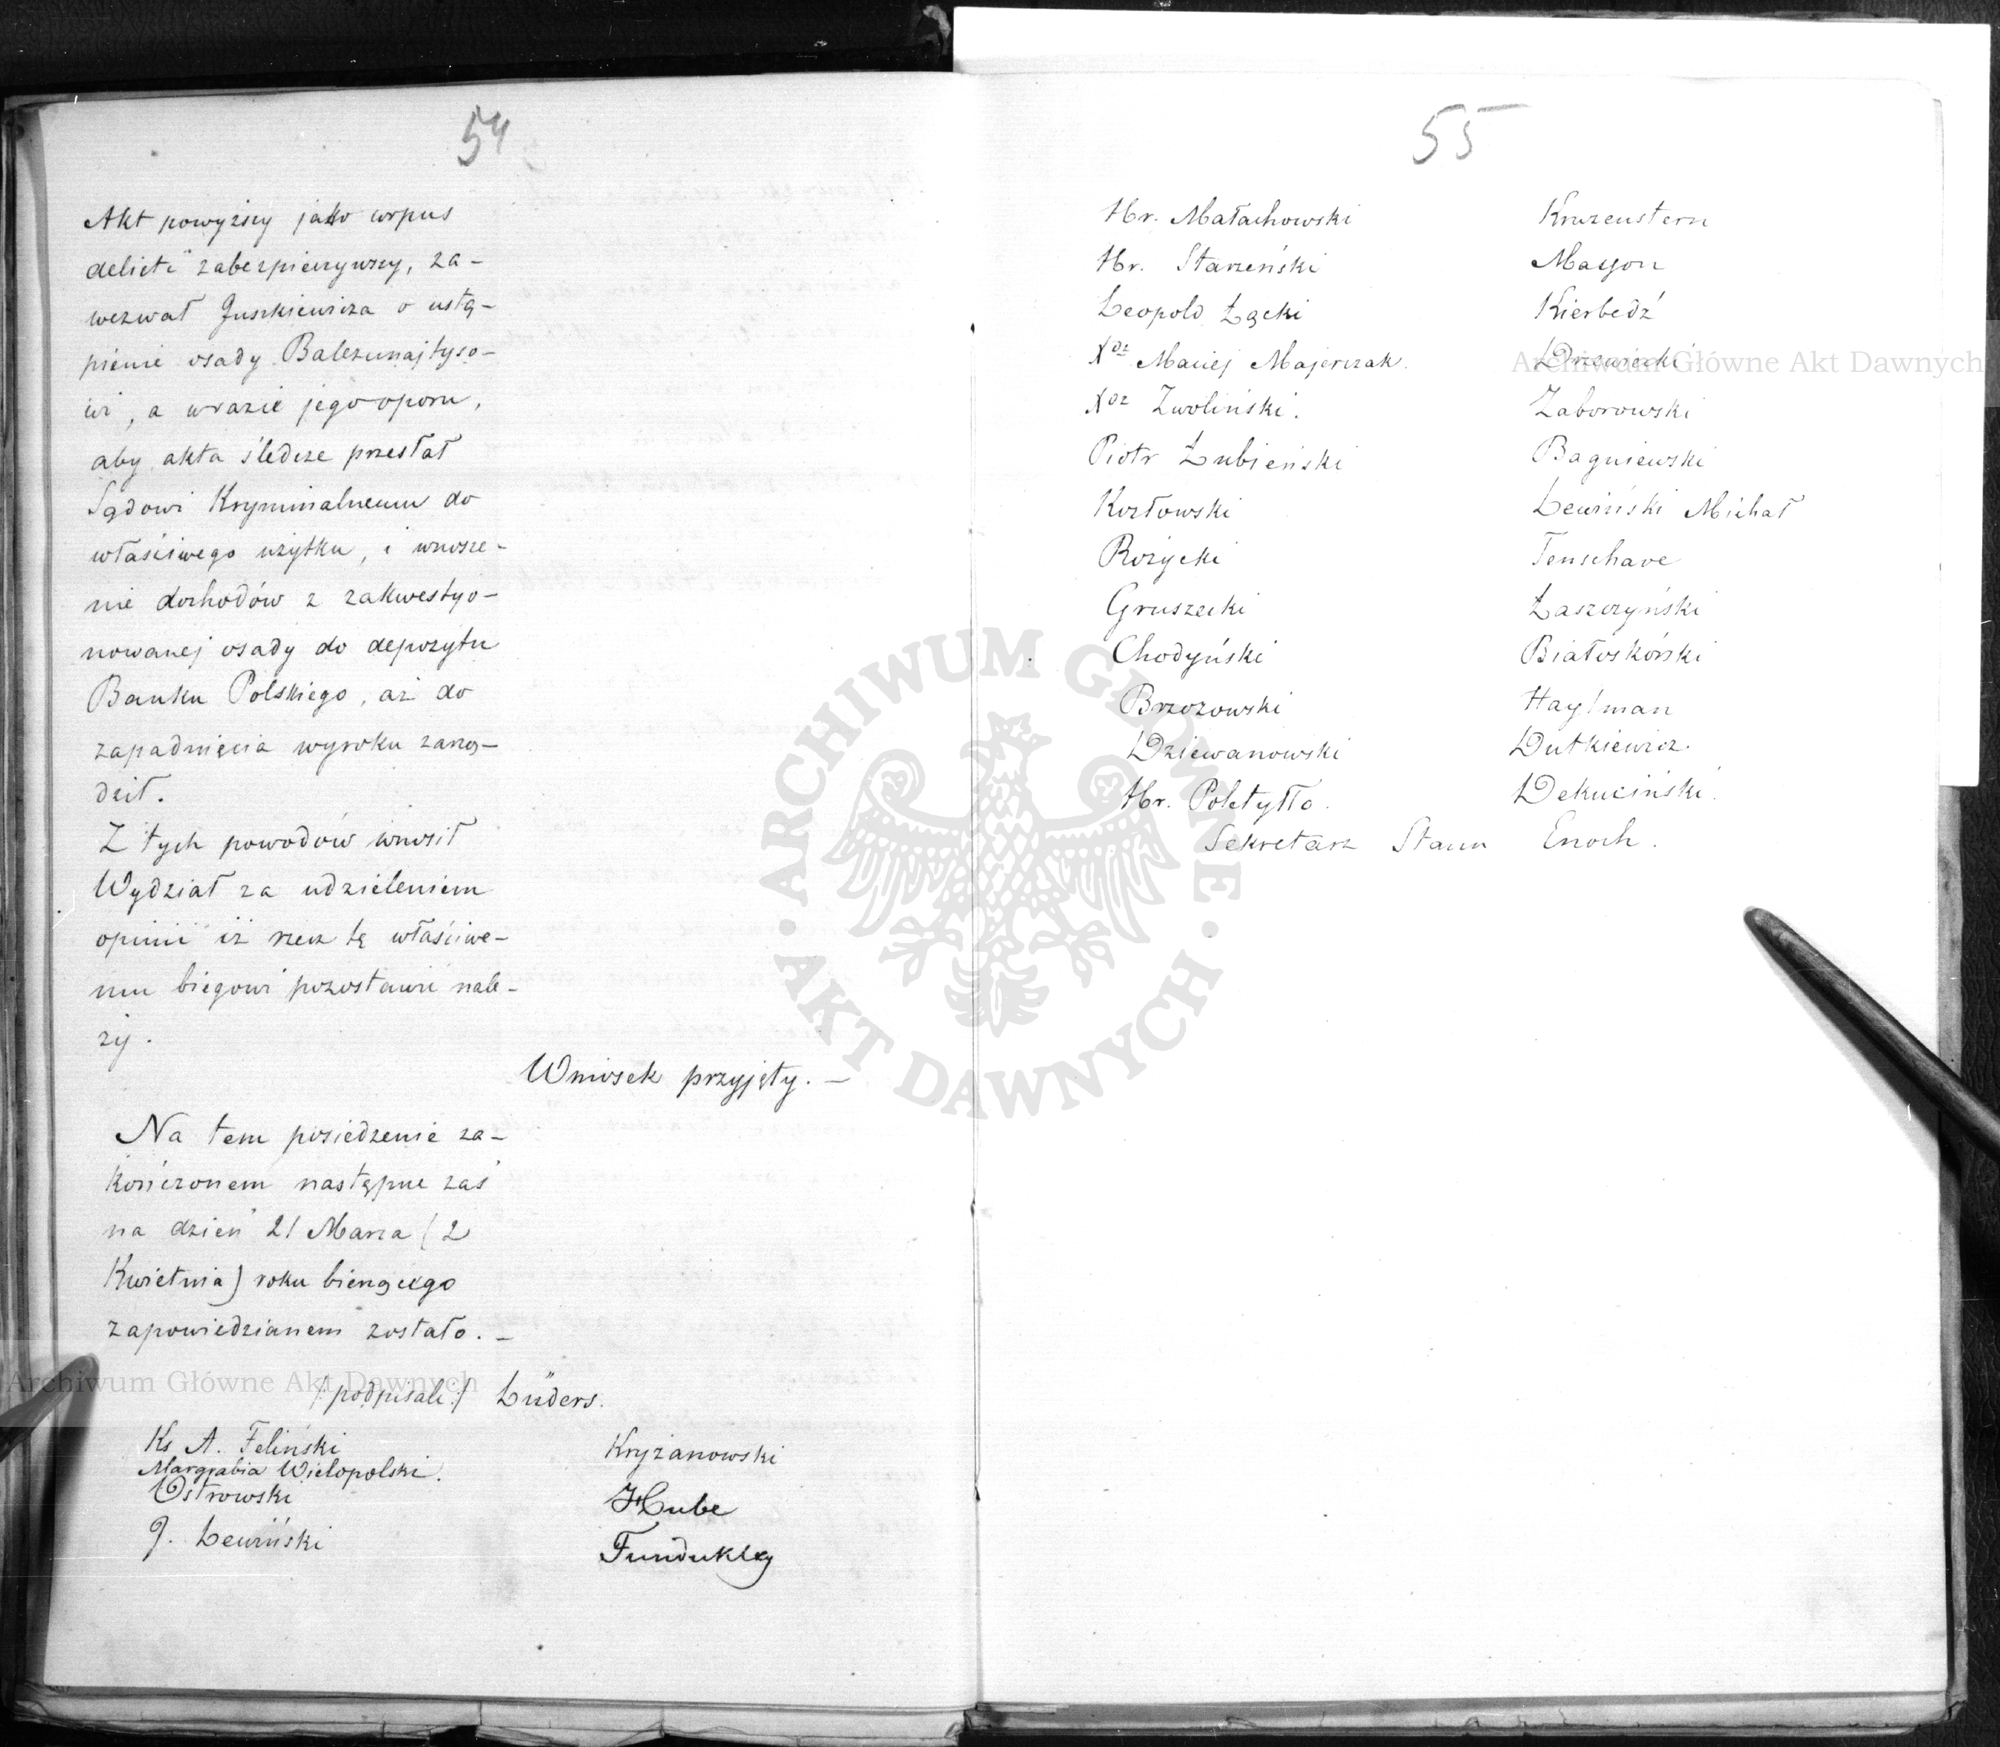 54
Akt powyższy jako corpus
delicti zabezpieczywszy, za-
wezwał Juszkiewicza o ustą-
pienie osady Balczunajtyso-
wi, a w razie jego oporu,
aby akta śledcze przesłał
Sądowi Kryminalnemu do
właściwego użytku, i wnosze-
nie dochodów z zakwestyo-
nowanej osady do depozytu
Banku Polskiego, aż do
zapadnięcia wyroku zarzą-
dził.
Z tych powodów wnosił
Wydział za udzieleniem
opinii iż rzecz tę właściwe-
mu biegowi pozostawić nale-
ży.
Wniosek przyjęty. —
Na tem posiedzenie za-
kończonem następne zaś
na dzień 21 Marca (2
Kwietnia) roku bieżącego
zapowiedzianem zostało. —
/:podpisali:/ Lüders.
Ks A. Feliński
Margrabia Wielopolski.
Ostrowski
J. Lewiński
Kryżanowski
Hube
Funduklej
55
Hr. Małachowski
Hr. Starzeński
Leopold Łącki
Xdz Maciej Majerczak.
Xdz Zwoliński.
Piotr Łubieński
Kozłowski
Różycki
Gruszecki
Chodyński
Brzozowski
Dziewanowski
Hr. Poletyłło.
Kruzenstern
Masson
Kierbedź
Drzewiecki
Zaborowski
Bagniewski
Lewiński Michał
Tenschave
Łaszczyński
Białoskórski
Haylman
Dutkiewicz.
Dekuciński.
Sekretarz Stanu Enoch.
Archiwum Główne Akt Dawnych
Archiwum Główne Akt Dawnych
ARCHIWUM GŁÓWNE · AKT DAWNYCH ·